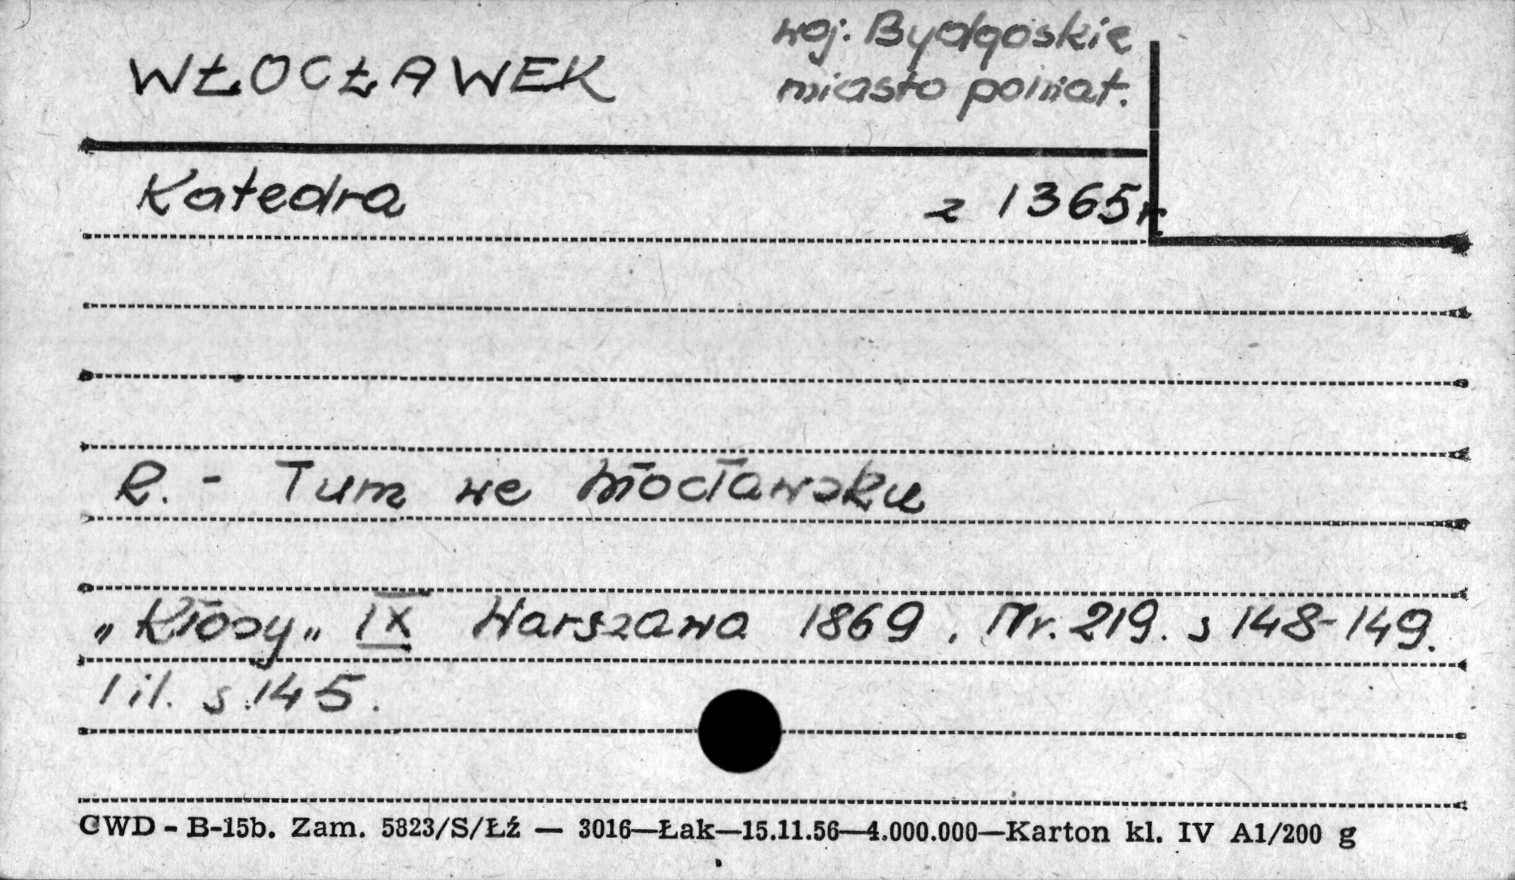 WŁOCŁAWEK
woj. Bydgoskie
miasto powiat.
Katedra z 1365r.
R. - Tum we Włocławsku
„Kłosy„ IX Warszawa 1869. Nr. 219. s 148-149.
1 il. s.145.
CWD - B-15b. Zam. 5823/S/Łź — 3016—Łak—15.11.56—4.000.000—Karton kl. IV A1/200 g